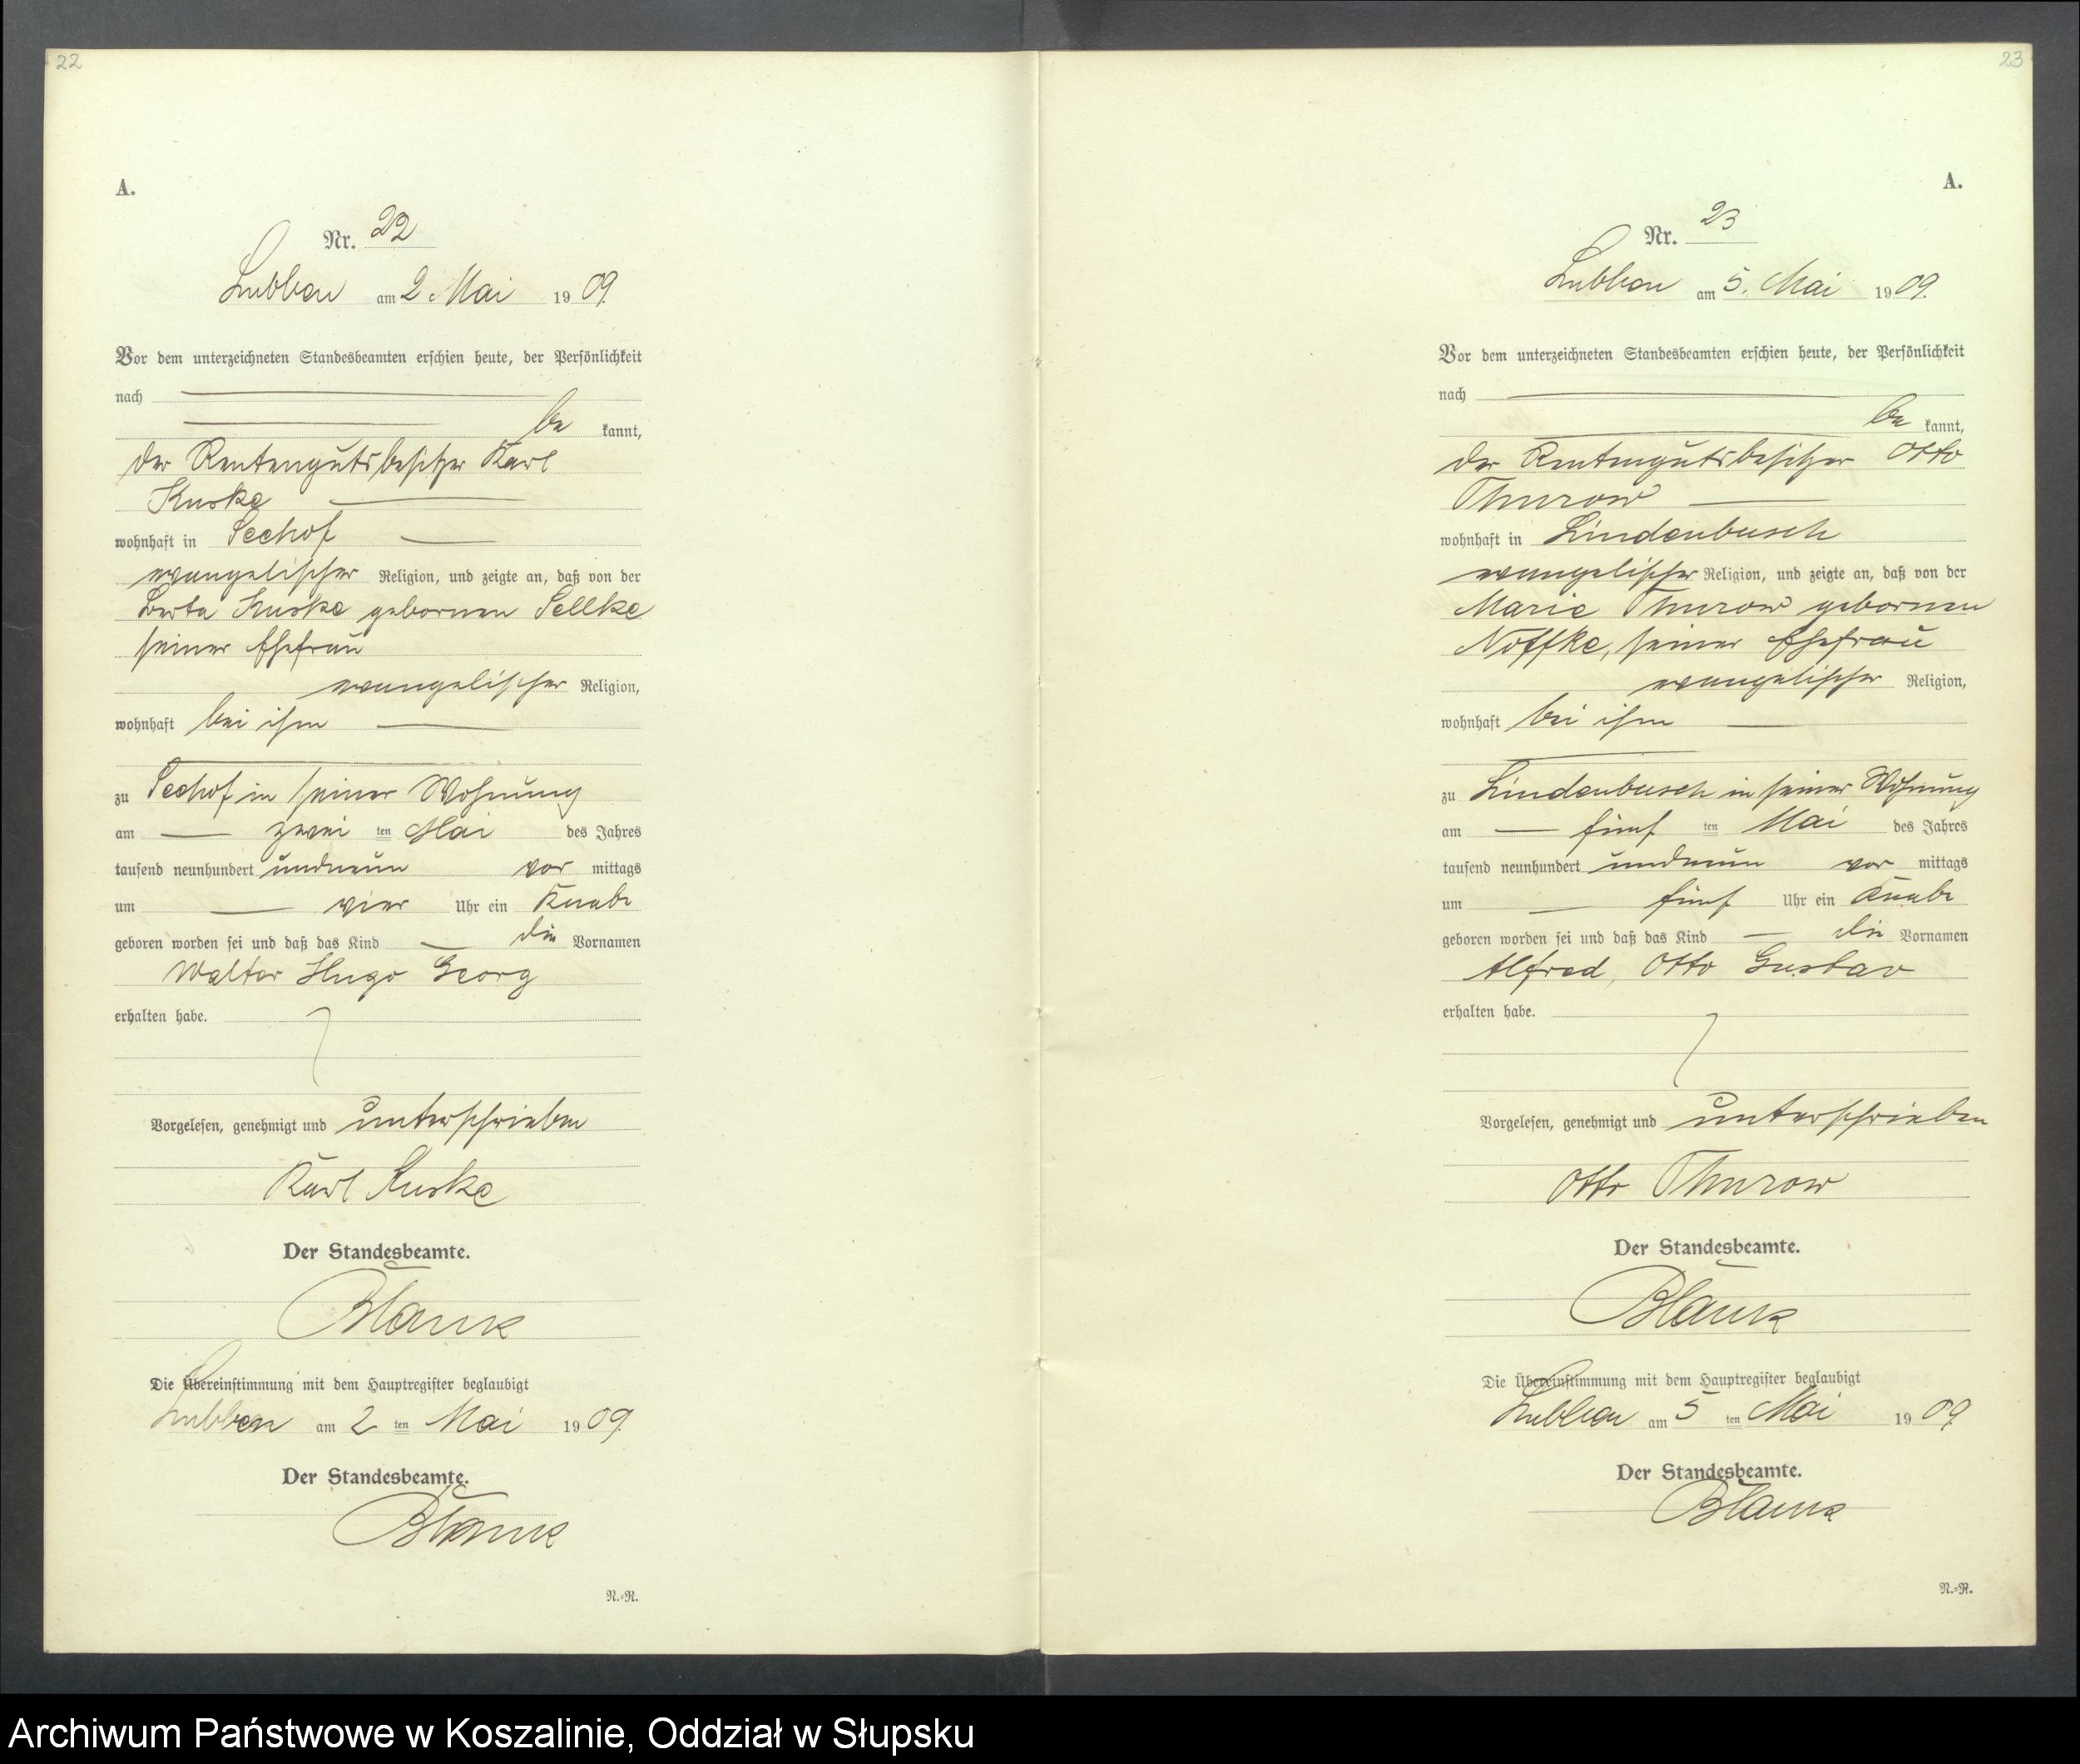 22
A.
Nr. 22
Lubben am 2. Mai 1909.
Vor dem unterzeichneten Standesbeamten erschien heute, der Persönlichkeit
nach
be kannt,
der Rentengutsbesitzer Karl
Kuske
wohnhaft in Seehof
evangelischer Religion, und zeigte an, daß von der
Berta Kuske gebornen Sellke
seiner Ehefrau
evangelischer Religion,
wohnhaft bei ihm
zu Seehof in seiner Wohnung
am zwei ten Mai des Jahres
tausend neunhundert undneun vor mittags
um vier Uhr ein Knabe
geboren worden sei und daß das Kind die Vornamen
Walter Hugo Georg
erhalten habe.
Vorgelesen, genehmigt und unterschrieben
Karl Kuske
Der Standesbeamte.
Blauk
Die Übereinstimmung mit dem Hauptregister beglaubigt
Lubben am 2 ten Mai 1909.
Der Standesbeamte.
Blauk
N.=R.
23
A.
Nr. 23
Lubben am 5. Mai 1909.
Vor dem unterzeichneten Standesbeamten erschien heute, der Persönlichkeit
nach
be kannt,
der Rentengutsbesitzer Otto
Thurow
wohnhaft in Lindenbusch
evangelischer Religion, und zeigte an, daß von der
Marie Thurow gebornen
Noffke, seiner Ehefrau
evangelischer Religion,
wohnhaft bei ihm
zu Lindenbusch in seiner Wohnung
am fünf ten Mai des Jahres
tausend neunhundert undneun vor mittags
um fünf Uhr ein Knabe
geboren worden sei und daß das Kind die Vornamen
Alfred, Otto Gustav
erhalten habe.
Vorgelesen, genehmigt und unterschrieben
Otto Thurow
Der Standesbeamte.
Blauk
Die Übereinstimmung mit dem Hauptregister beglaubigt
Lubben am 5 ten Mai 1909.
Der Standesbeamte.
Blauk
N.=R.
Archiwum Państwowe w Koszalinie, Oddział w Słupsku